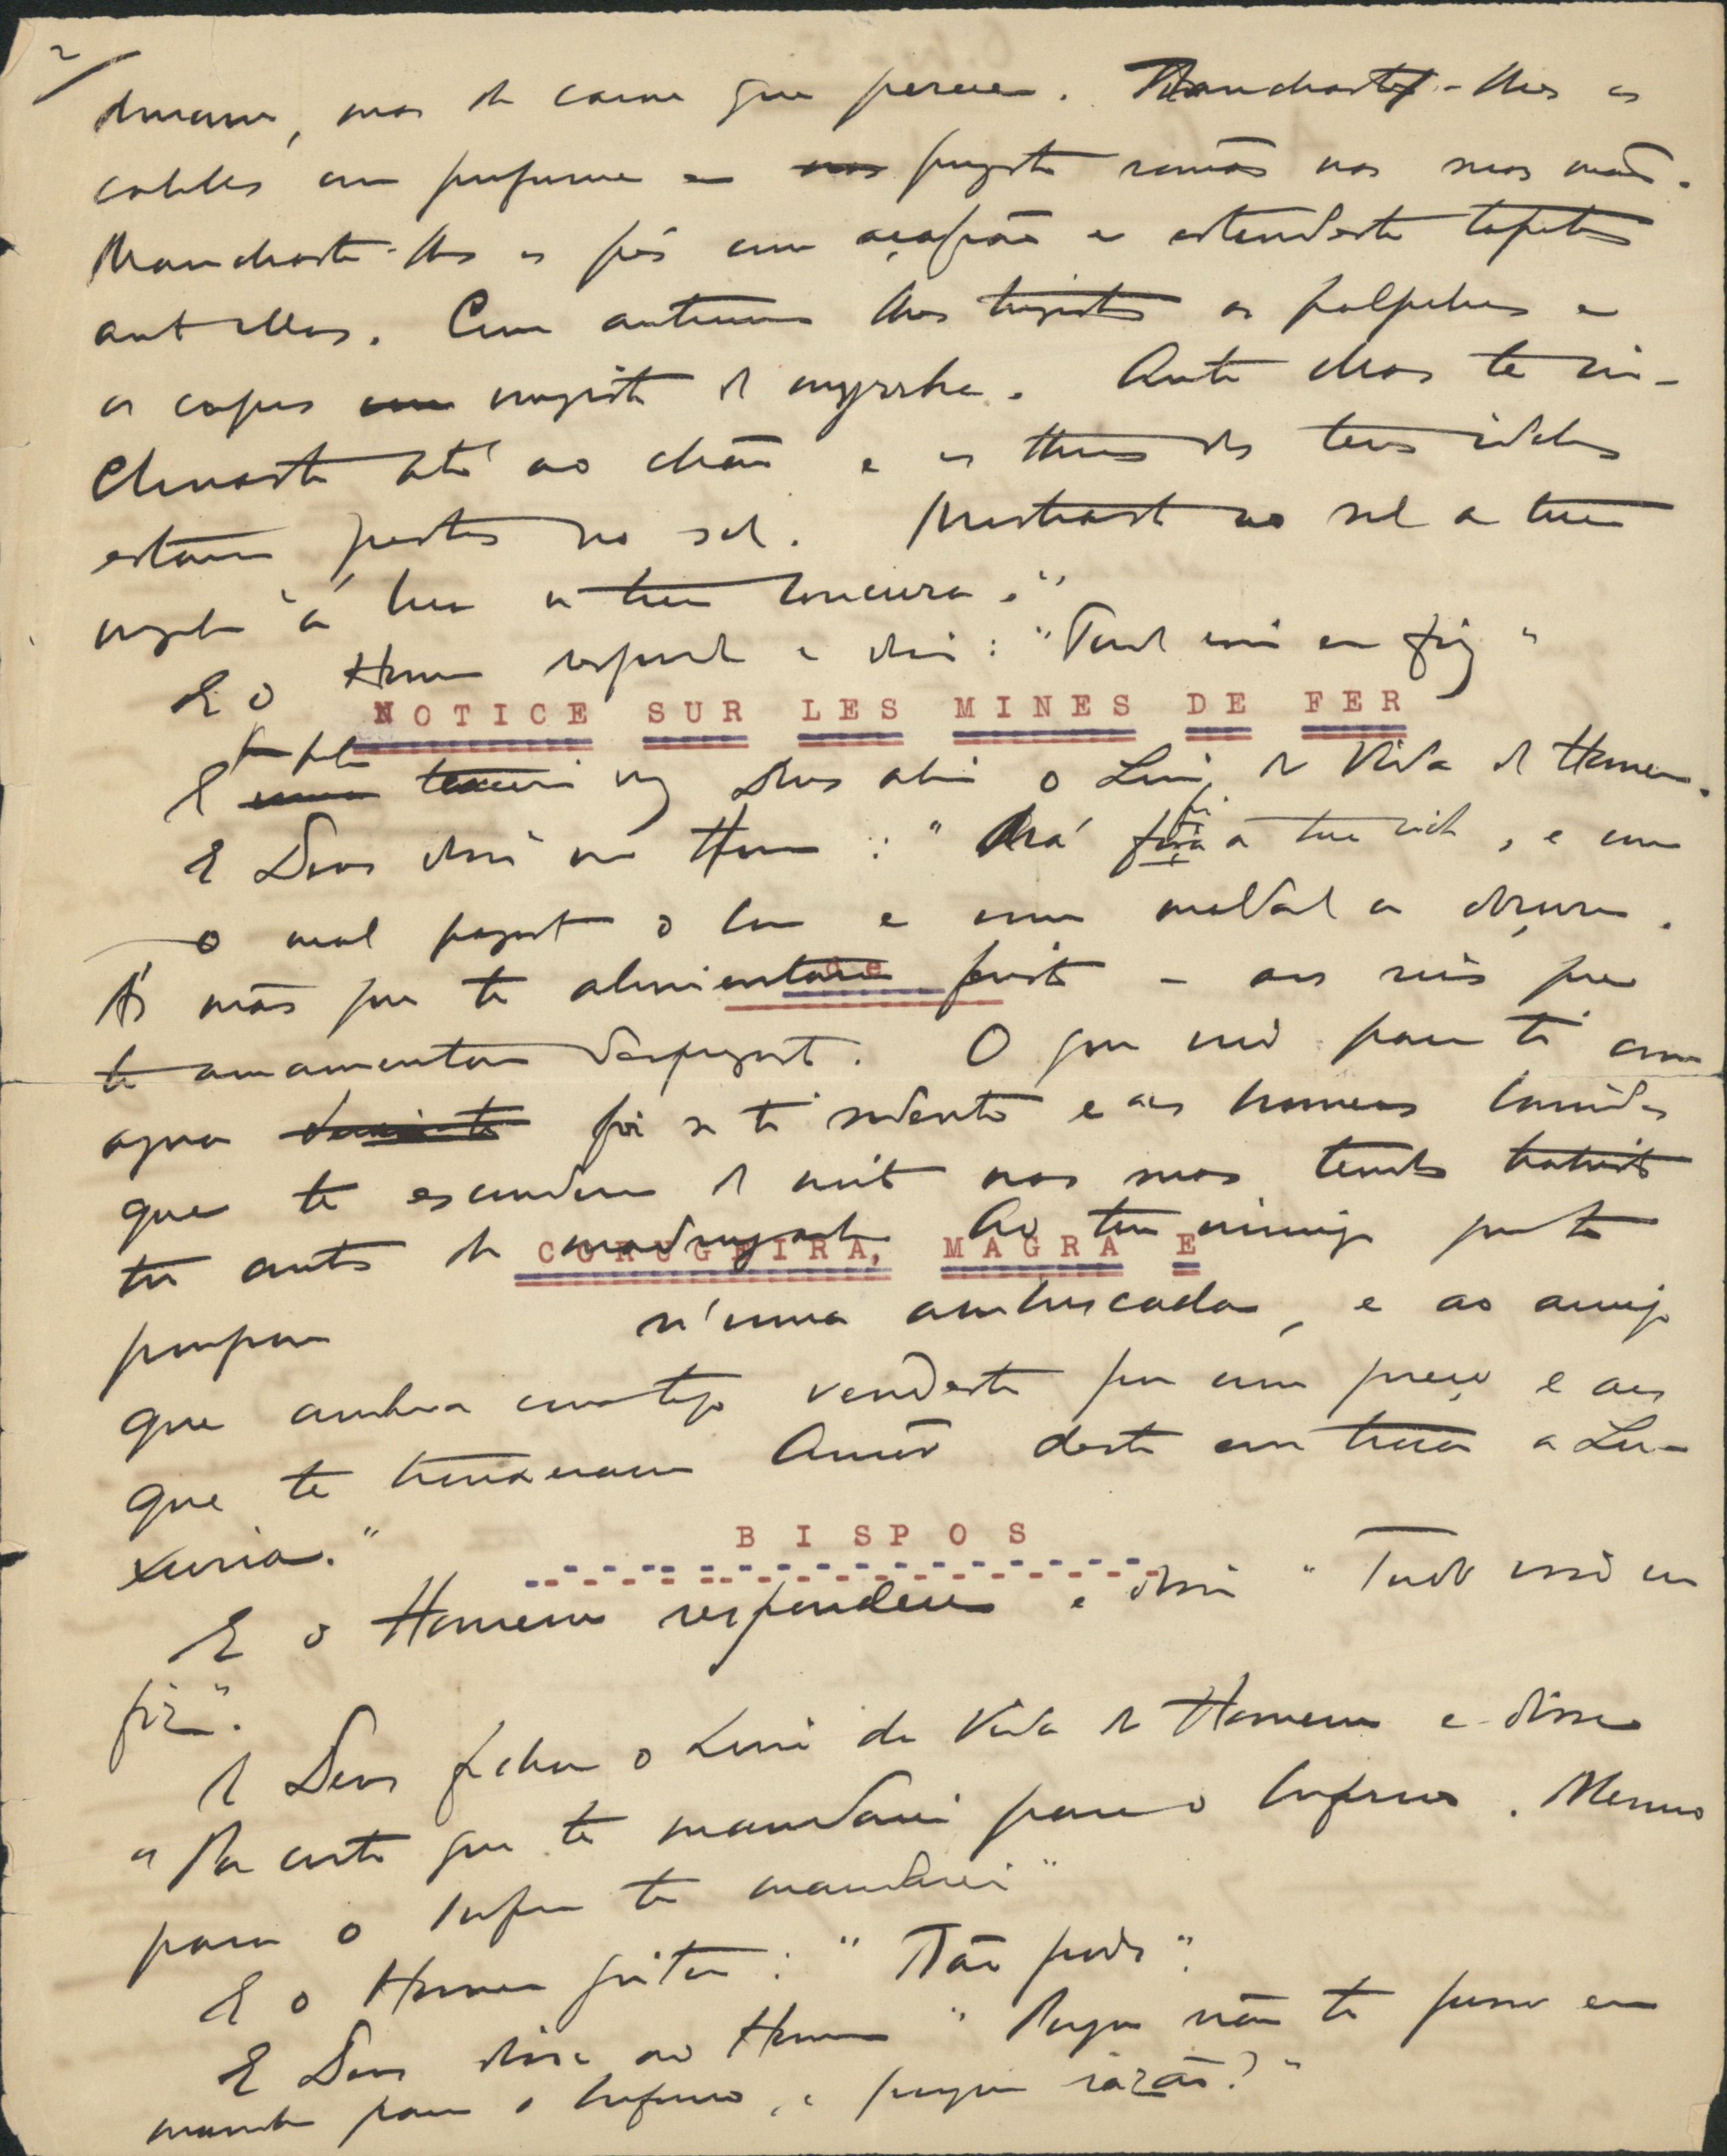 2/
durava, mas de carne que perece. Manchaste-lhes os
cabellos com perfume e puzeste romãs nas suas mãos.
Manchaste-lhes os pés com açafrão e estendeste tapetes
ante ellas. Com antimonio lhes tingiste as palpebras e
os corpos ungiste de myrrha. Ante ellas te in-
clinaste até ao chão e os thronos dos teus idolos
estavam postos no sol. Mostraste ao sol a tua
e à lua a tua loucura."
E o Homem respondeu e disse: "Tudo isso eu fiz"
NOTICE SUR LES MINES DE FER
E terceira vez Deus abriu o Livro da Vida do Homem.
E Deus disse ao Homem: "Má foi a tua vida, e com
o mal pagaste o bem e com maldade a doçura.
de
Ás mãos que te alimentaram feriste - aos seios que
te amamentaram desprezaste. O que veio para ti com
agua foi-se de ti sedento e aos homens banidos
que te esconderam de noite nas suas tendas trahiste
tu antes da madrugada. Ao teu inimigo que te
CORUGEIRA, MAGRA E
poupou n'uma emboscada, e ao amigo
que andava comtigo vendeste por um preço e aos
que te trouxeram Amôr deste em troca a Lu-
xuria."
BISPOS
E o Homem respondeu e disse "Tudo isso eu
fiz".
E Deus fechou o Livro da Vida do Homem e disse
"Por certo que te mandarei para o Inferno. Mesmo
para o Inferno te mandarei"
E o Homem gritou: "Não podes".
E Deus disse ao Homem "Porque não te posso eu
mandar para o Inferno, e porque razão?"